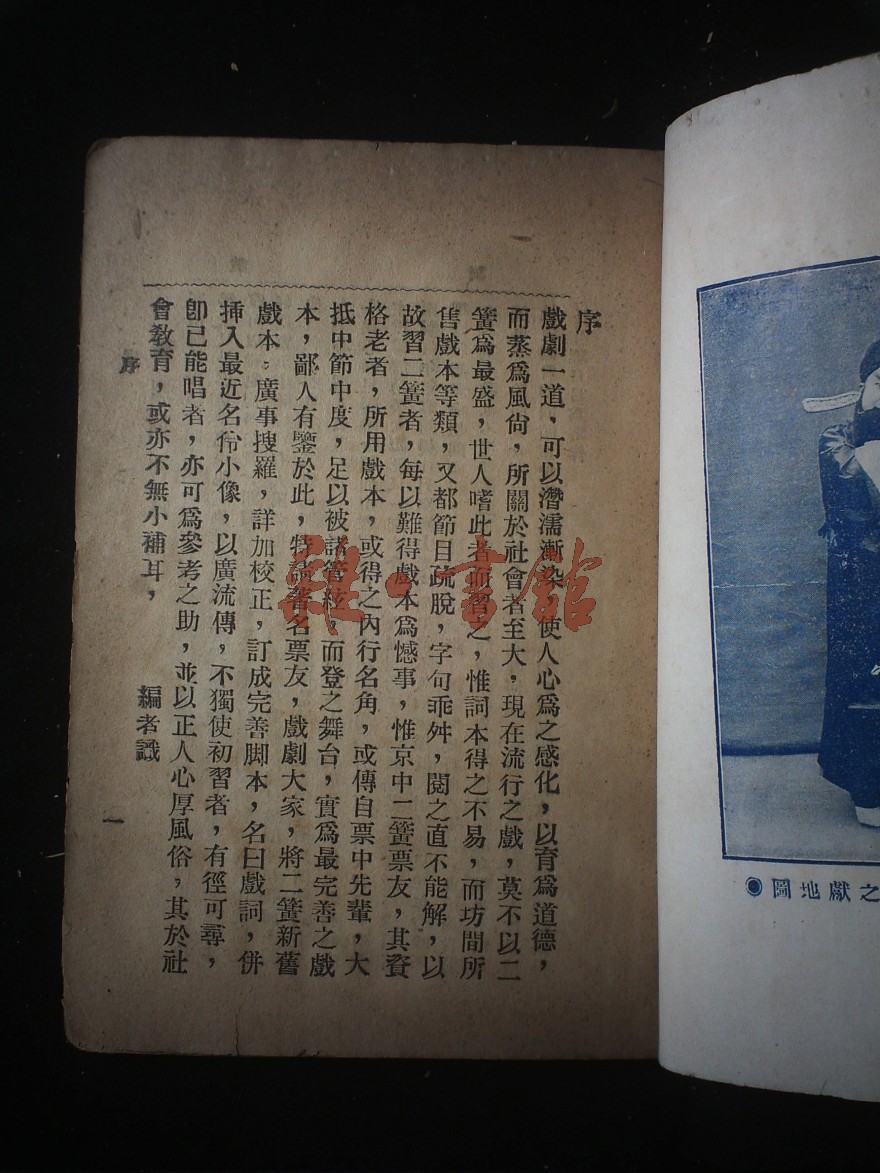 序
戲劇一道，可以潛濡漸染，使人心爲之感化，以育爲道德，
而蒸爲風尙，所關於社會者至大，現在流行之戲，莫不以二
簧爲最盛，世人嗜此者而習之，惟詞本得之不易，而坊間所
售戲本等類，又都節目疏脫，字句乖舛，閱之直不能解，以
故習二簧者，每以難得戲本爲憾事，惟京中二簧票友，其資
格老者，所用戲本，或得之內行名角，或傳自票中先輩，大
抵中節中度，足以被諸管絃，而登之舞台，實爲最完善之戲
本，鄙人有鑒於此，特請著名票友，戲劇大家，將二簧新舊
戲本。廣事搜羅，詳加校正，訂成完善脚本，名曰戲詞，併
挿入最近名伶小像，以廣流傳，不獨使初習者，有徑可尋，
卽已能唱者，亦可爲參考之助，並以正人心厚風俗，其於社
會教育，或亦不無小補耳，
編者識
序
一
之獻地圖
書館